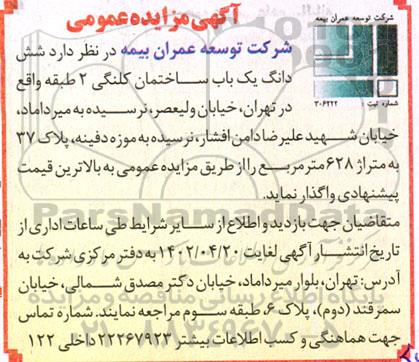 آگهی مزایده عمومی
شرکت توسعه عمران بیمه
شماره ثبت : ۳۰۶۲۲۲
شرکت توسعه عمران بیمه در نظر دارد شش
دانگ یک باب ساختمان کلنگی ۲ طبقه واقع
در تهران، خیابان ولیعصر، نرسیده به میرداماد،
خیابان شهید علیرضا دامن افشار، نرسیده به موزه دفینه، پلاک ۳۷
به متراژ ۶۲۸ متر مربع را از طریق مزایده عمومی به بالاترین قیمت
پیشنهادی واگذار نماید.
متقاضیان جهت بازدید و اطلاع از سایر شرایط طی ساعات اداری از
تاریخ انتشار آگهی لغایت ۱۴۰۲/۰۴/۲۰ به دفتر مرکزی شرکت به
آدرس: تهران، بلوار میرداماد، خیابان دکتر مصدق شمالی، خیابان
سمرقند (دوم)، پلاک ۶، طبقه سوم مراجعه نمایند. شماره تماس
جهت هماهنگی و کسب اطلاعات بیشتر ۲۲۲۶۷۹۲۳ داخلی ۱۲۲